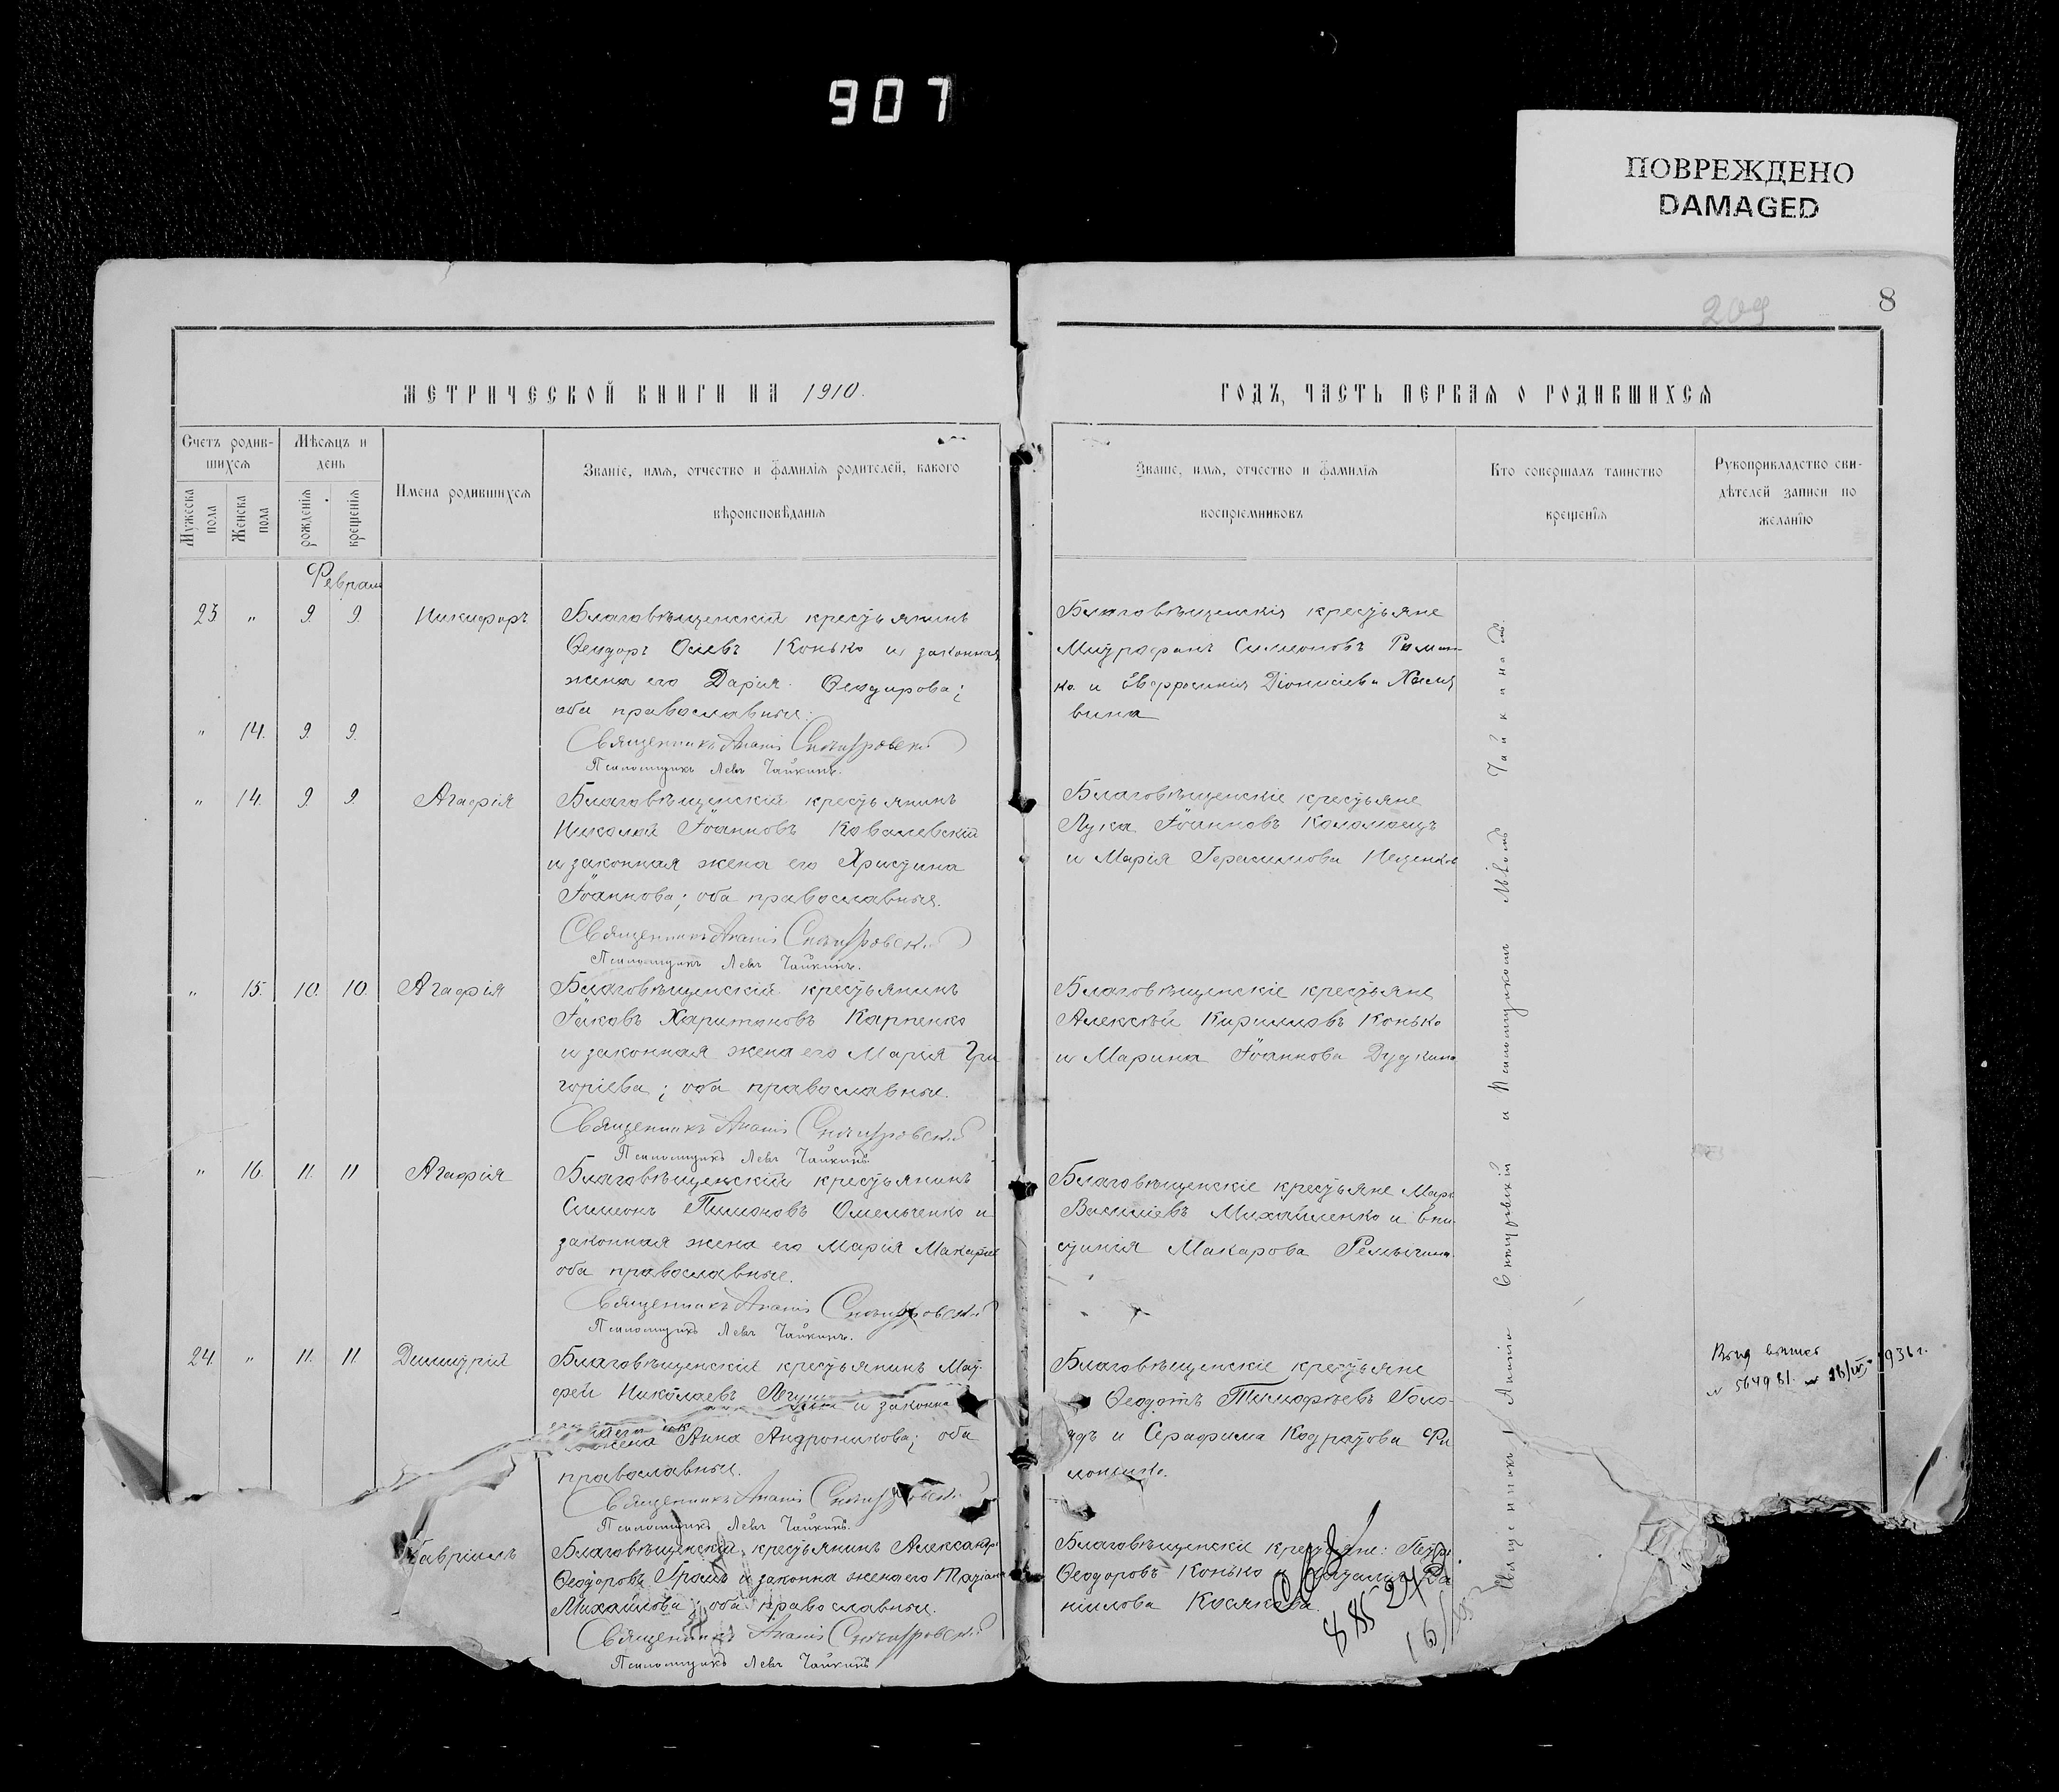 907
ПОВРЕЖДЕНО
DAMAGED
209
8
МЕТРИЧЕСКОЙ КНИГИ НА 1910.
ГОДЪ, ЧАСТЬ ПЕРВАЯ О РОДИВШИХСЯ
Счетъ родив-
шихся
Мужеска пола
Женска пола
Мѣсяцъ и
день
рожденія
крещенія
Имена родившихся
Званіе, имя, отчество и фамилія родителей, какого
вѣроисповѣданія
Званіе, имя, отчество и фамилія
воспріемниковъ
Кто совершалъ таинство
крещенія
Рукоприкладство сви-
дѣтелей записи по
желанію
Февраль
23 " 9. 9. Никифоръ
Благовѣщенскій крестьянинъ
Ѳеодоръ Осіевъ Конько и законная
жена его Дарія Ѳеодорова;
оба православные.
Благовѣщенскія крестьяне
Митрофанъ Симеоновъ Роман-
ко и Евфросинія Діонисіева
вина
" 14. 9. 9.
Священникъ Ананій Снѣгуровскій
Псаломщикъ Левъ Чайкинъ.
" 14. 9. 9. Агафія
Благовѣщенскій крестьянинъ
Николай Іоанновъ Ковалевскій
и законная жена его Христина
Іоаннова; оба православные.
Священникъ Ананій Снѣгуровскій
Псаломщикъ Левъ Чайкинъ.
Благовѣщенскіе крестьяне
Лука Іоанновъ Коломоецъ
и Марія Герасимова
" 15. 10. 10. Агафія
Благовѣщенскій крестьянинъ
Іаковъ Харитоновъ Карпенко
и законная жена его Марія Гри
горіева; оба православные.
Священникъ Ананій Снѣгуровскій
Псаломщикъ Левъ Чайкинъ.
Благовѣщенскіе крестьяне
Алексѣй Кирилловъ Конько
и Марина Іоаннова Дудкина
" 16. 11. 11 Агафія
Благовѣщенскій крестьянинъ
Симеонъ Пимоновъ Омельченко и
законная жена его Марія Макаріе
оба православные.
Священникъ Ананій Снѣгуровскій
Псаломщикъ Левъ Чайкинъ.
Благовѣщенскіе крестьяне Маркъ
Василіевъ Михайленко и Епи-
стинія Макарова
24. " 11. 11. Димитрій
Благовѣщенскій крестьянинъ Мат-
фей Николаевъ и законна
жена Анна Андроникова; оба
православные.
Священникъ Ананій Снѣгуровскій
Псаломщикъ Левъ Чайкинъ.
Благовѣщенскіе крестьяне
Ѳеодотъ Тимофѣевъ Голо-
и Серафима Кодратова Фи
лоненко.
936 г.
Гавріилъ
Благовѣщенскій крестьянинъ Александръ
Ѳеодоровъ и законна жена его Татіана
Михайлова; оба православные.
Священникъ Ананій Снѣгуровскій
Псаломщикъ Левъ Чайкинъ
Благовѣщенскіе крестьяне: Петръ
Ѳеодоровъ Конько и Наталія Да
ніилова Косякова.
Священникъ Ананій Снѣгуровскій и Псаломщикомъ Львомъ Чайкинымъ.